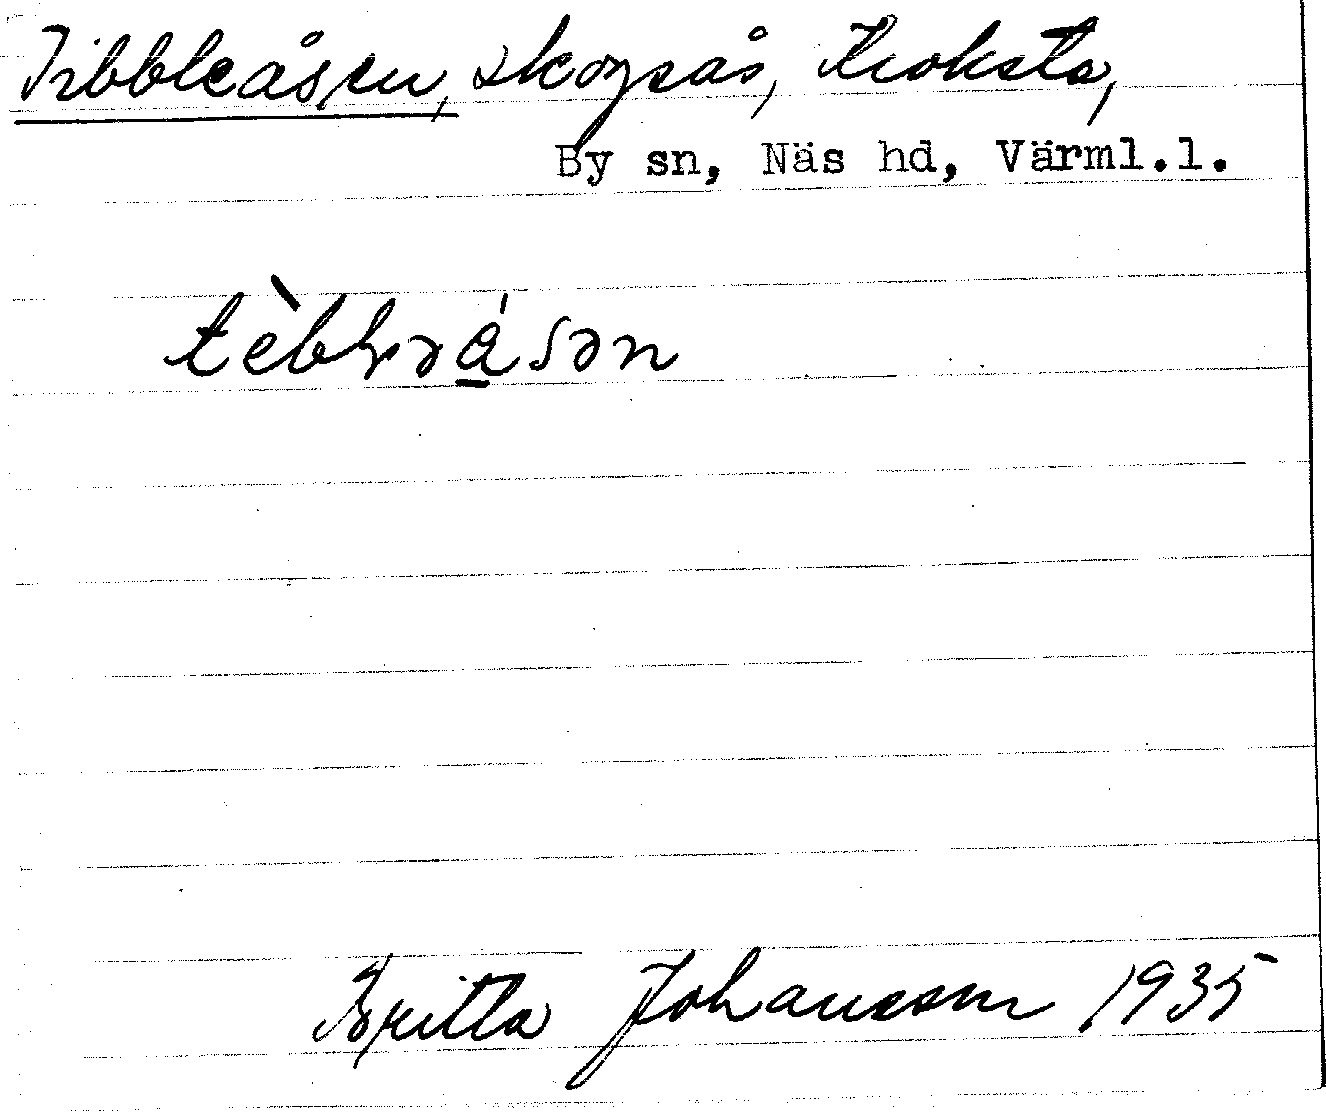 Tibbleåsen, skogsås, Kroksta,
By sn, Näs hd, Värml.l.
Britta Johansson 1935